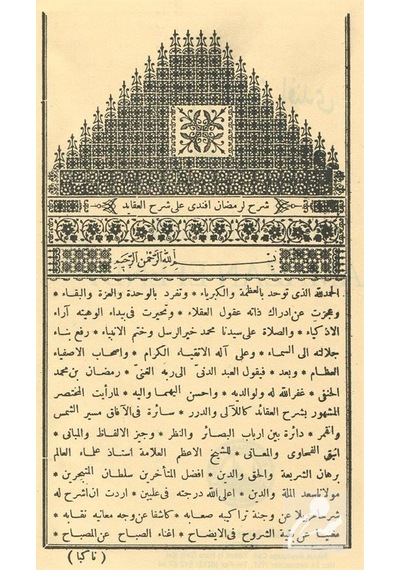 شرح لرمضان افندى على شرح العقايد
بسم الله الرحمن الرحيم
الحمدلله الذى توحد بالعظمة والكبرياء * وتفرد بالوحدة والعزة والبقاء *
وعجزت عن ادراك ذاته عقول العقلاء * وتحيرت فى بيداء الوهيته آراء
الاذكياء * والصلاة على سيدنا محمد خير الرسل وختم الانبياء * رفع بناء
جلالته الى السماء * وعلى آله الاتقياء الكرام * واصحاب الاصفياء
العظام * وبعد * فيقول العبد الدنى الى ربه الغنى * رمضان بن محمد
الحنفى * غفر الله له ولوالديه * واحسن اليهما واليه * لما رأيت المختصر
المشهور بشرح العقائد كاللآلى والدرر * سائرة فى الآفاق مسير الشمس
والقمر * دائرة بين ارباب البصائر والنظر * وجيز الالفاظ والمبانى *
انيق الفحاوى والمعانى * للشيخ الاعظم العلامة استاذ علماء العالم
برهان الشريعة والحق والدين * افضل المتأخرين سلطان المتبحرين *
مولانا سعد الملة والدين * اعلى الله درجته فى عليين * اردت ان اشرح له
شرحا مزيلا عن وجنة تراكيبه صعابه * كاشفا عن وجه معانيه نقابه *
مغنيا عن بقية الشروح فى الايضاح * اغناء الصباح عن المصباح *